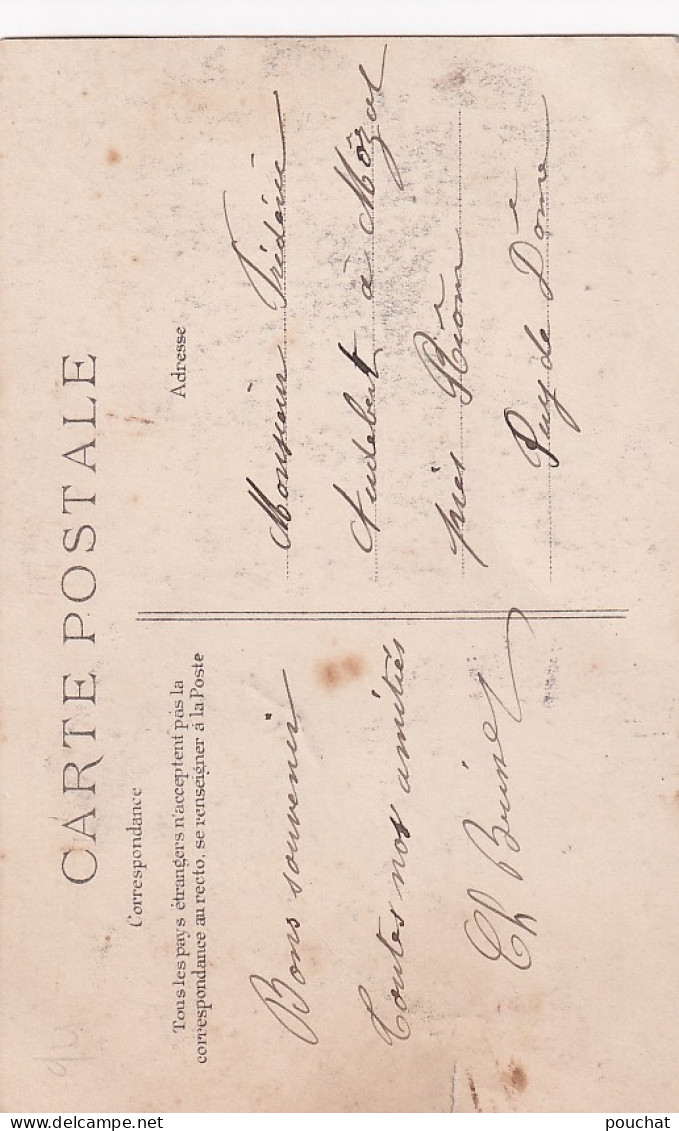 CARTE POSTALE
Correspondance
Tous les pays étrangers n'acceptent pas la
correspondance au recto, se renseigner à la Poste
Bons souvenir
Toutes nos amitiés
Th
Adresse
Monsieur Frédéric
Audebert à Mozat
près Riom
Puy de Dôme
94
Delcampe.net
pouchat